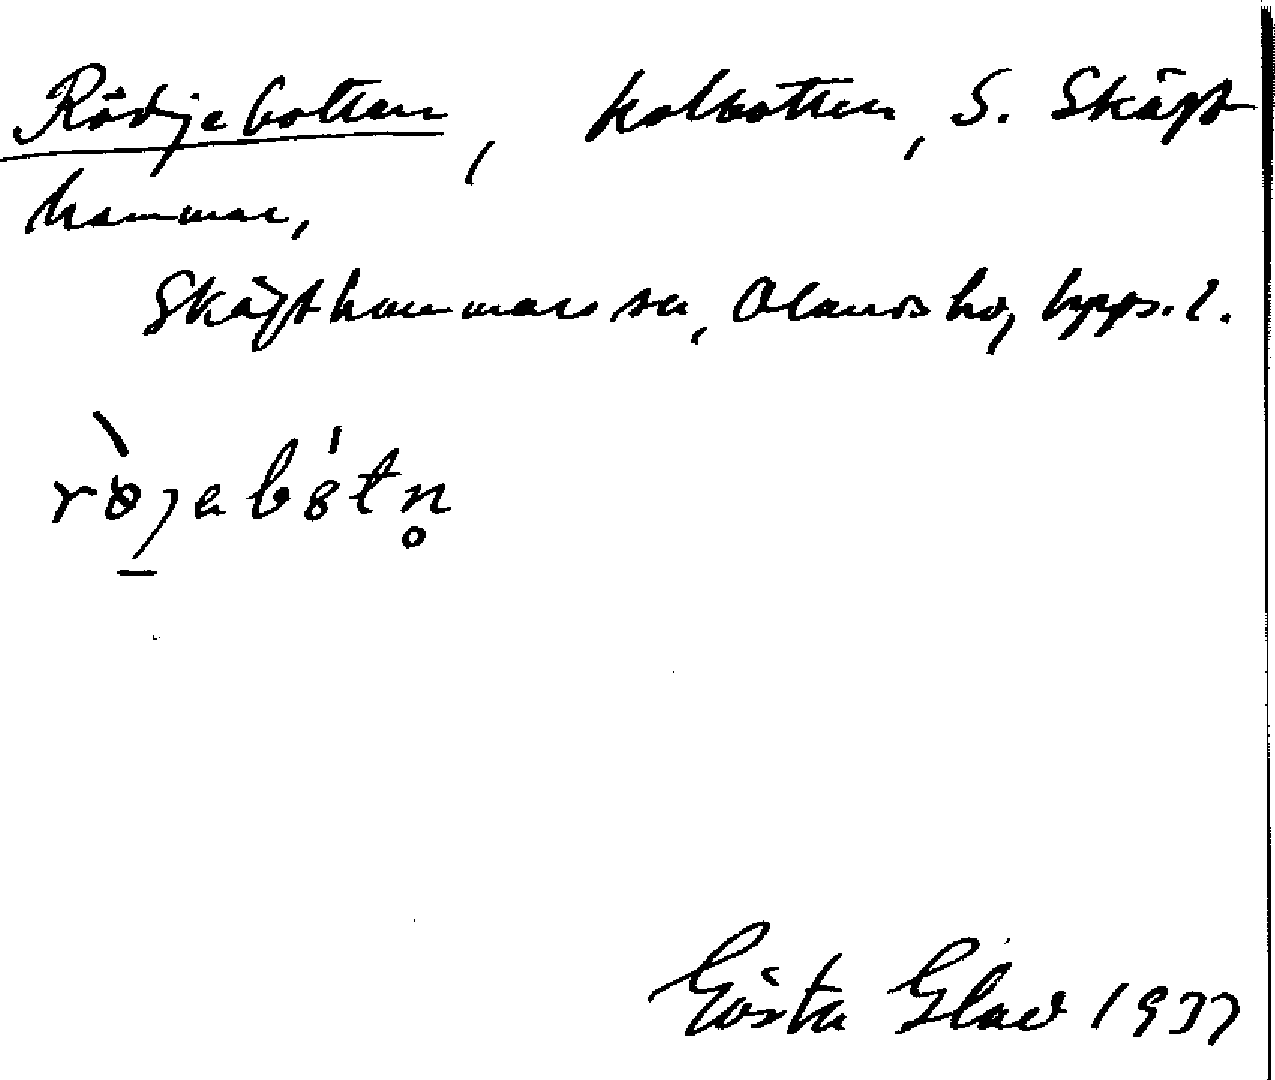 Rödjebotten, kolbotten, S. Skäft
hammar,
Skäfthammars sn, Olands hd, Upps. l.
rö̀jebòtn̥
Gösta Glad 1937